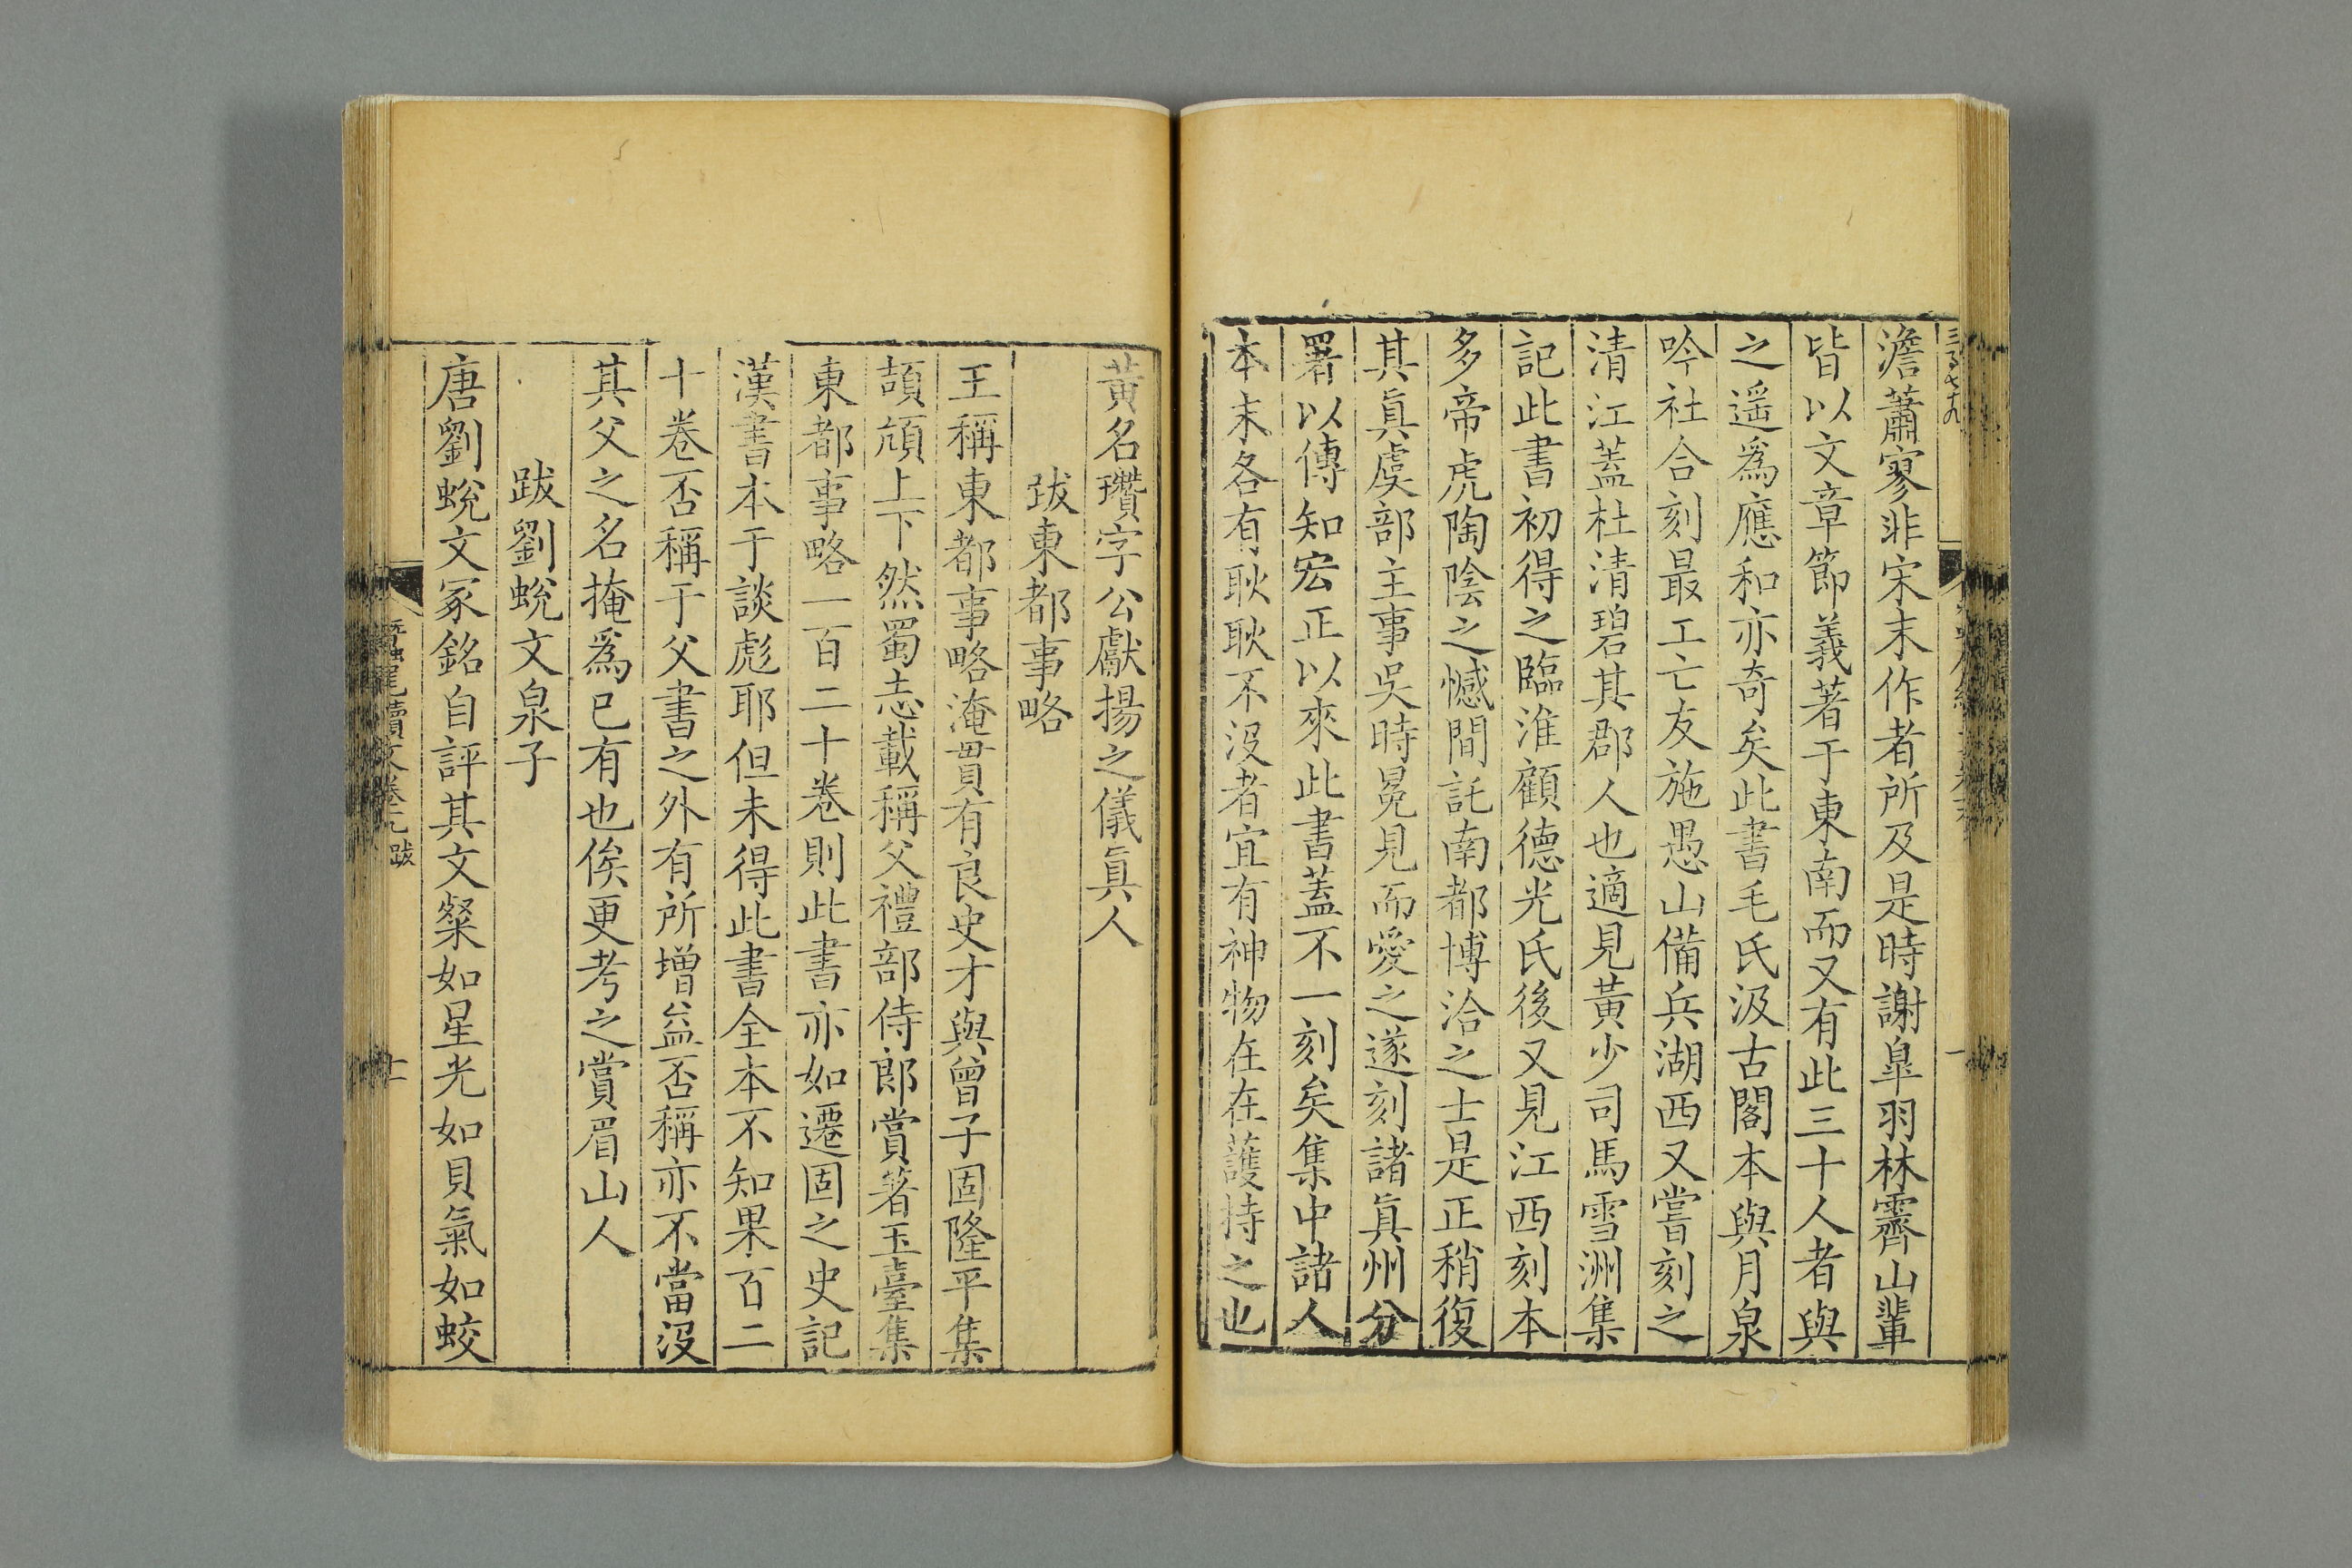 澹蕭寥非宋末作者所及是時謝臯羽林霽山輩
皆以文章節義著于東南而又有此三十人者與
之遥爲應和亦奇矣此書毛氏汲古閣本與月泉
吟社合刻最工亡友施愚山備兵湖西又嘗刻之
清江蓋杜清碧其郡人也適見黃少司馬雪洲集
記此書初得之臨淮顧德光氏後又見江西刻本
多帝虎陶陰之憾間託南都博洽之士是正稍復
其眞虞部主事吳時冕見而愛之遂刻諸眞州分
署以傳知宏正以來此書蓋不一刻矣集中諸人
本末各有耿耿不沒者宜有神物在在護持之也
黃名瓚字公獻揚之儀眞人
跋東都事略
王稱東都事略淹貫有良史才與曾子固隆平集
頡頏上下然蜀志載稱父禮部侍郎賞著玉臺集
東都事略一百二十卷則此書亦如遷固之史記
漢書本于談彪耶但未得此書全本不知果百二
十卷否稱于父書之外有所增益否稱亦不當沒
其父之名掩爲已有也俟更考之賞眉山人
跋劉蛻文泉子
唐劉蛻文冢銘自評其文粲如星光如貝氣如蛟
蠶尾續文卷 跋